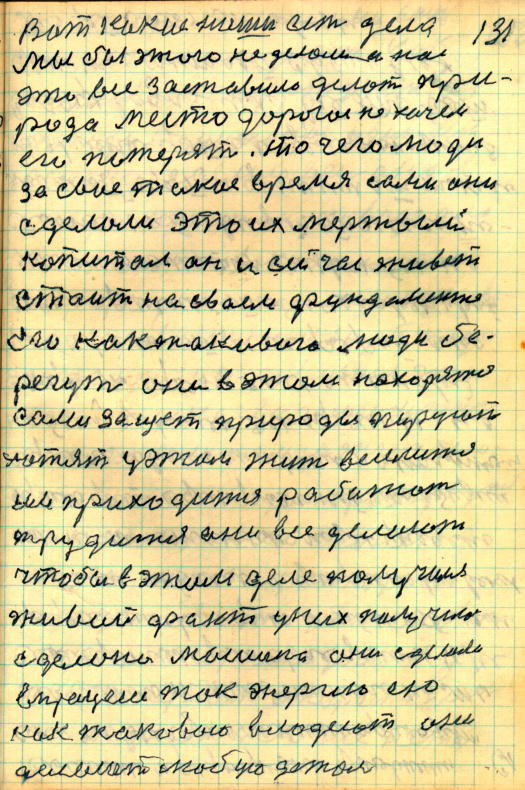 Вот какие наши ест дела 131
мы бы этого не делали а нас
это все заставило делат при-
рода место дорогое не хочем
его потерят. то чего люди
за свое такое время сами они
сделали это их мертвый
копитал он и сичас живет
стаит на своем фундаменте
его как такового люди бе-
регут они в этом находятся
сами защет природы пируют
хотят у этом жит веелитса
им приходится работат
трудится они все делают
чтобы в этом деле получился
живой факт у них получилос
сделона машина они сделали
впрацеси ток энергию ею
как таковою владеют они
делают любую детал